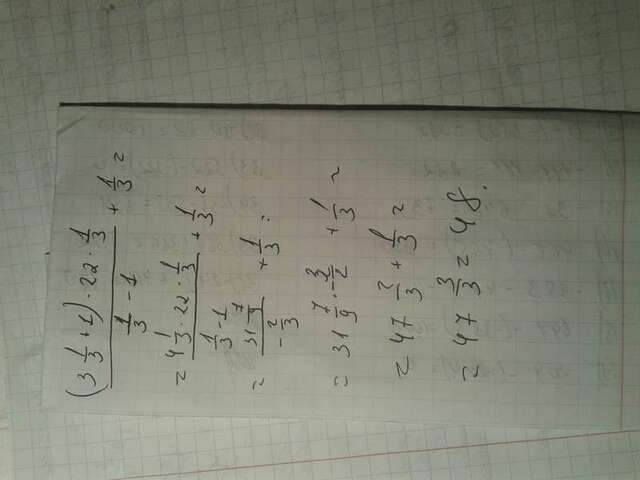 ((3 1/3 + 1) · 22 · 1/3) / (1/3 - 1) + 1/3 =
= (4 1/3 · 22 · 1/3) / (1/3 - 1) + 1/3 =
= (31 7/9) / (- 2/3) + 1/3 =
= 31 7/9 · - 3/2 + 1/3 =
= 47 2/3 + 1/3 =
= 47 3/3 = 48.